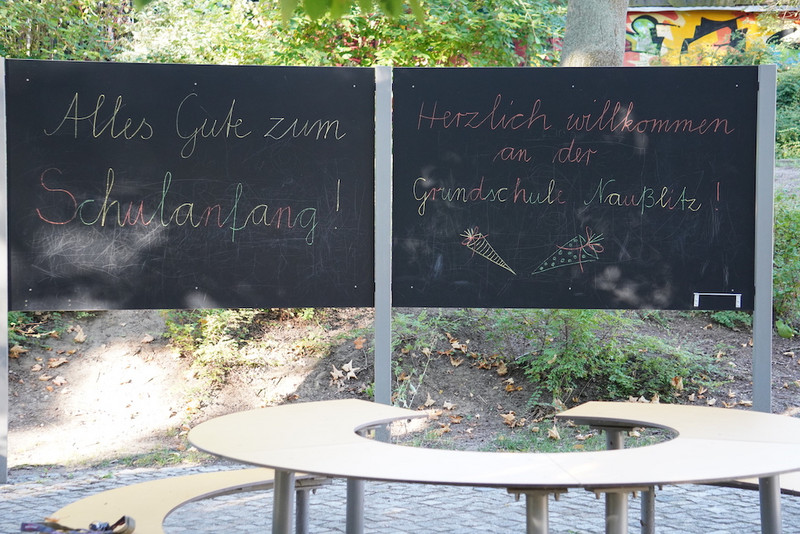 Alles Gute zum
Schulanfang!
Herzlich willkommen
an der
Grundschule Naußlitz!